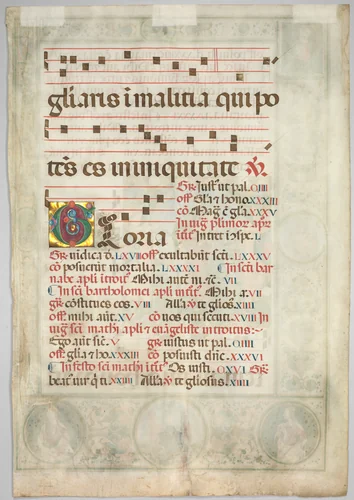 gliaris i malitia qui po
tēs es in iniquitate ℣.
Gr̄ Iust ut pal. CIIII
off̄ Gl̄a & hono. XXXIII
cō Mag̅ ē gl̄a. XXXV
In uig̅ plimor apr̄
itr̄ Intret i ɔspc̄. L
Gloria
Gr̄ uidica d̄. LXVIII off̄ exultabūt scī. LXXXV
cō posuerūt mortalia. LXXXXI ¶ In sc̄i bar
nabe apl̄i itroit̄ Mihi aut̄ nī. &. VII
¶ In sc̄i bartholomei apl̄i itr̄. Mihi a. VII
gr̄ cōstitues eos. VIII Alla℣ te glōs. XIIII
off̄ mihi aūt. XV cō uos qui secuti. XVIII In
uig̅ sc̄i mathi apl̄i & euāgeliste introitus:~
Ego aut̄ sic̄. V gr̄ iustus ut pal. CIIII
off̄ gl̄a & ho. XXXIII cō posuisti dn̄e. XXXVI
¶ In festo sc̄i mathi itr̄ Os iusti. CXVI Gr̄
beat' uir q̄ ti. XXIIII Alla℣ te gliosus. XIIII